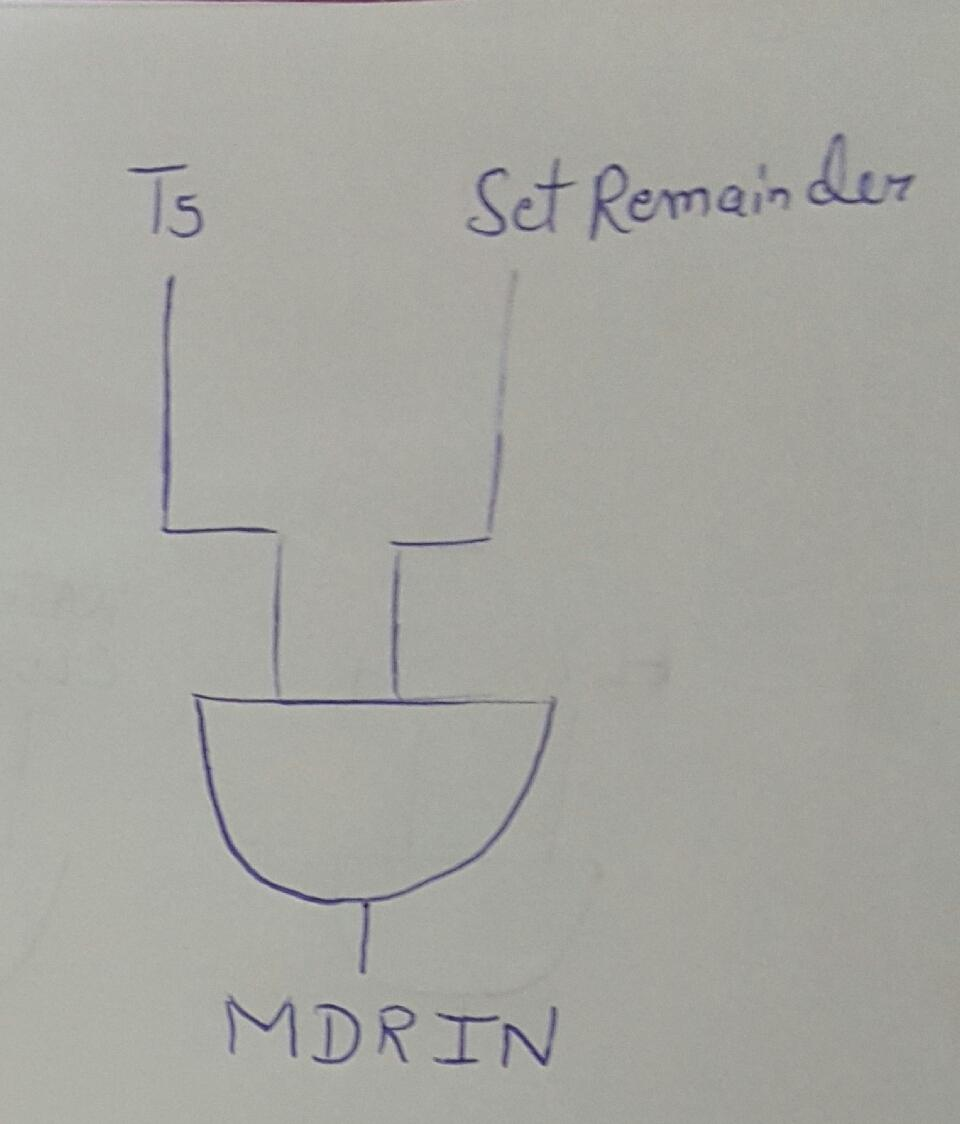 T5 Set Remainder
MDRIN